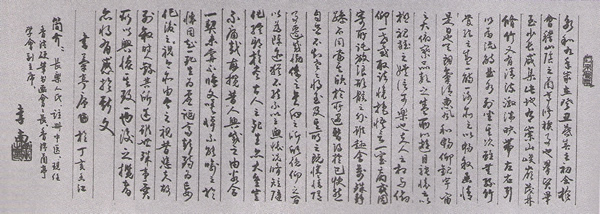 永和九年歲在癸丑暮春之初會於
會稽山陰之蘭亭修禊事也羣賢畢
至少長咸集此地有崇山峻嶺茂林
修竹又有清流激湍映帶左右引
以為流觴曲水列坐其次雖無絲竹
管弦之盛一觴一詠亦足以暢敘幽情
是日也天朗氣清惠風和暢仰觀宇宙
之大俯察品類之盛所以遊目騁懷足以
極視聽之娛信可樂也夫人之相與俯
仰一世或取諸懷抱悟言一室之內或因
寄所託放浪形骸之外雖趣舍萬殊靜
躁不同當其欣於所遇暫得於己快然
自足不知老之將至及其所之既倦情隨
事遷感慨係之矣向之所欣俛仰之間
以為陳迹猶不能不以之興懷況修短隨
化終期於盡古人云死生亦大矣豈
不痛哉每攬昔人興感之由若合
一契未嘗不臨文嗟悼不能喻之於
懷固知一死生為虛誕齊彭殤為妄
作後之視今亦由今之視昔悲夫故
列敘時人錄其所述雖世殊事異
所以興懷其致一也後之攬者
亦將有感於斯文
書蘭亭序於丁亥
簡介：長樂人氏，註冊中醫，現任
香港硬筆書畫會會長，香港蘭亭
學會副主席。